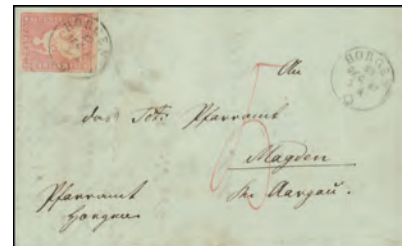 HORGEN
HORGEN
An
das Tit. Pfarramt
Magden
Kt. Aargau.
Pfarramt
Horgen